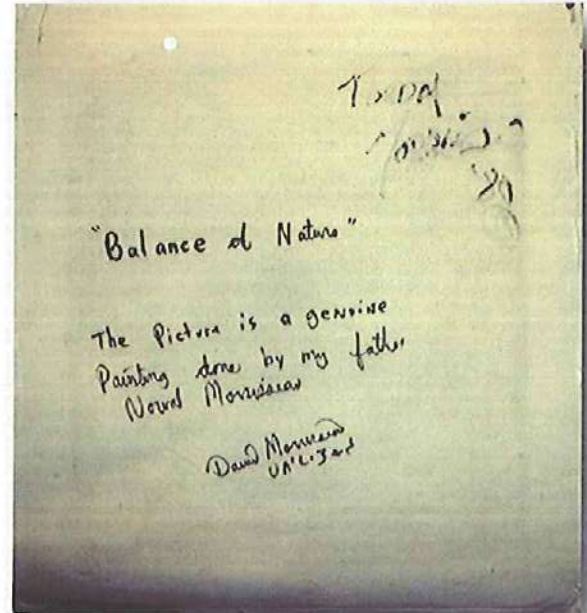 '80
"Balance of Nature"
The Picture is a genuine
Painting done by my father
Norval Morrisseau
David Morrisseau